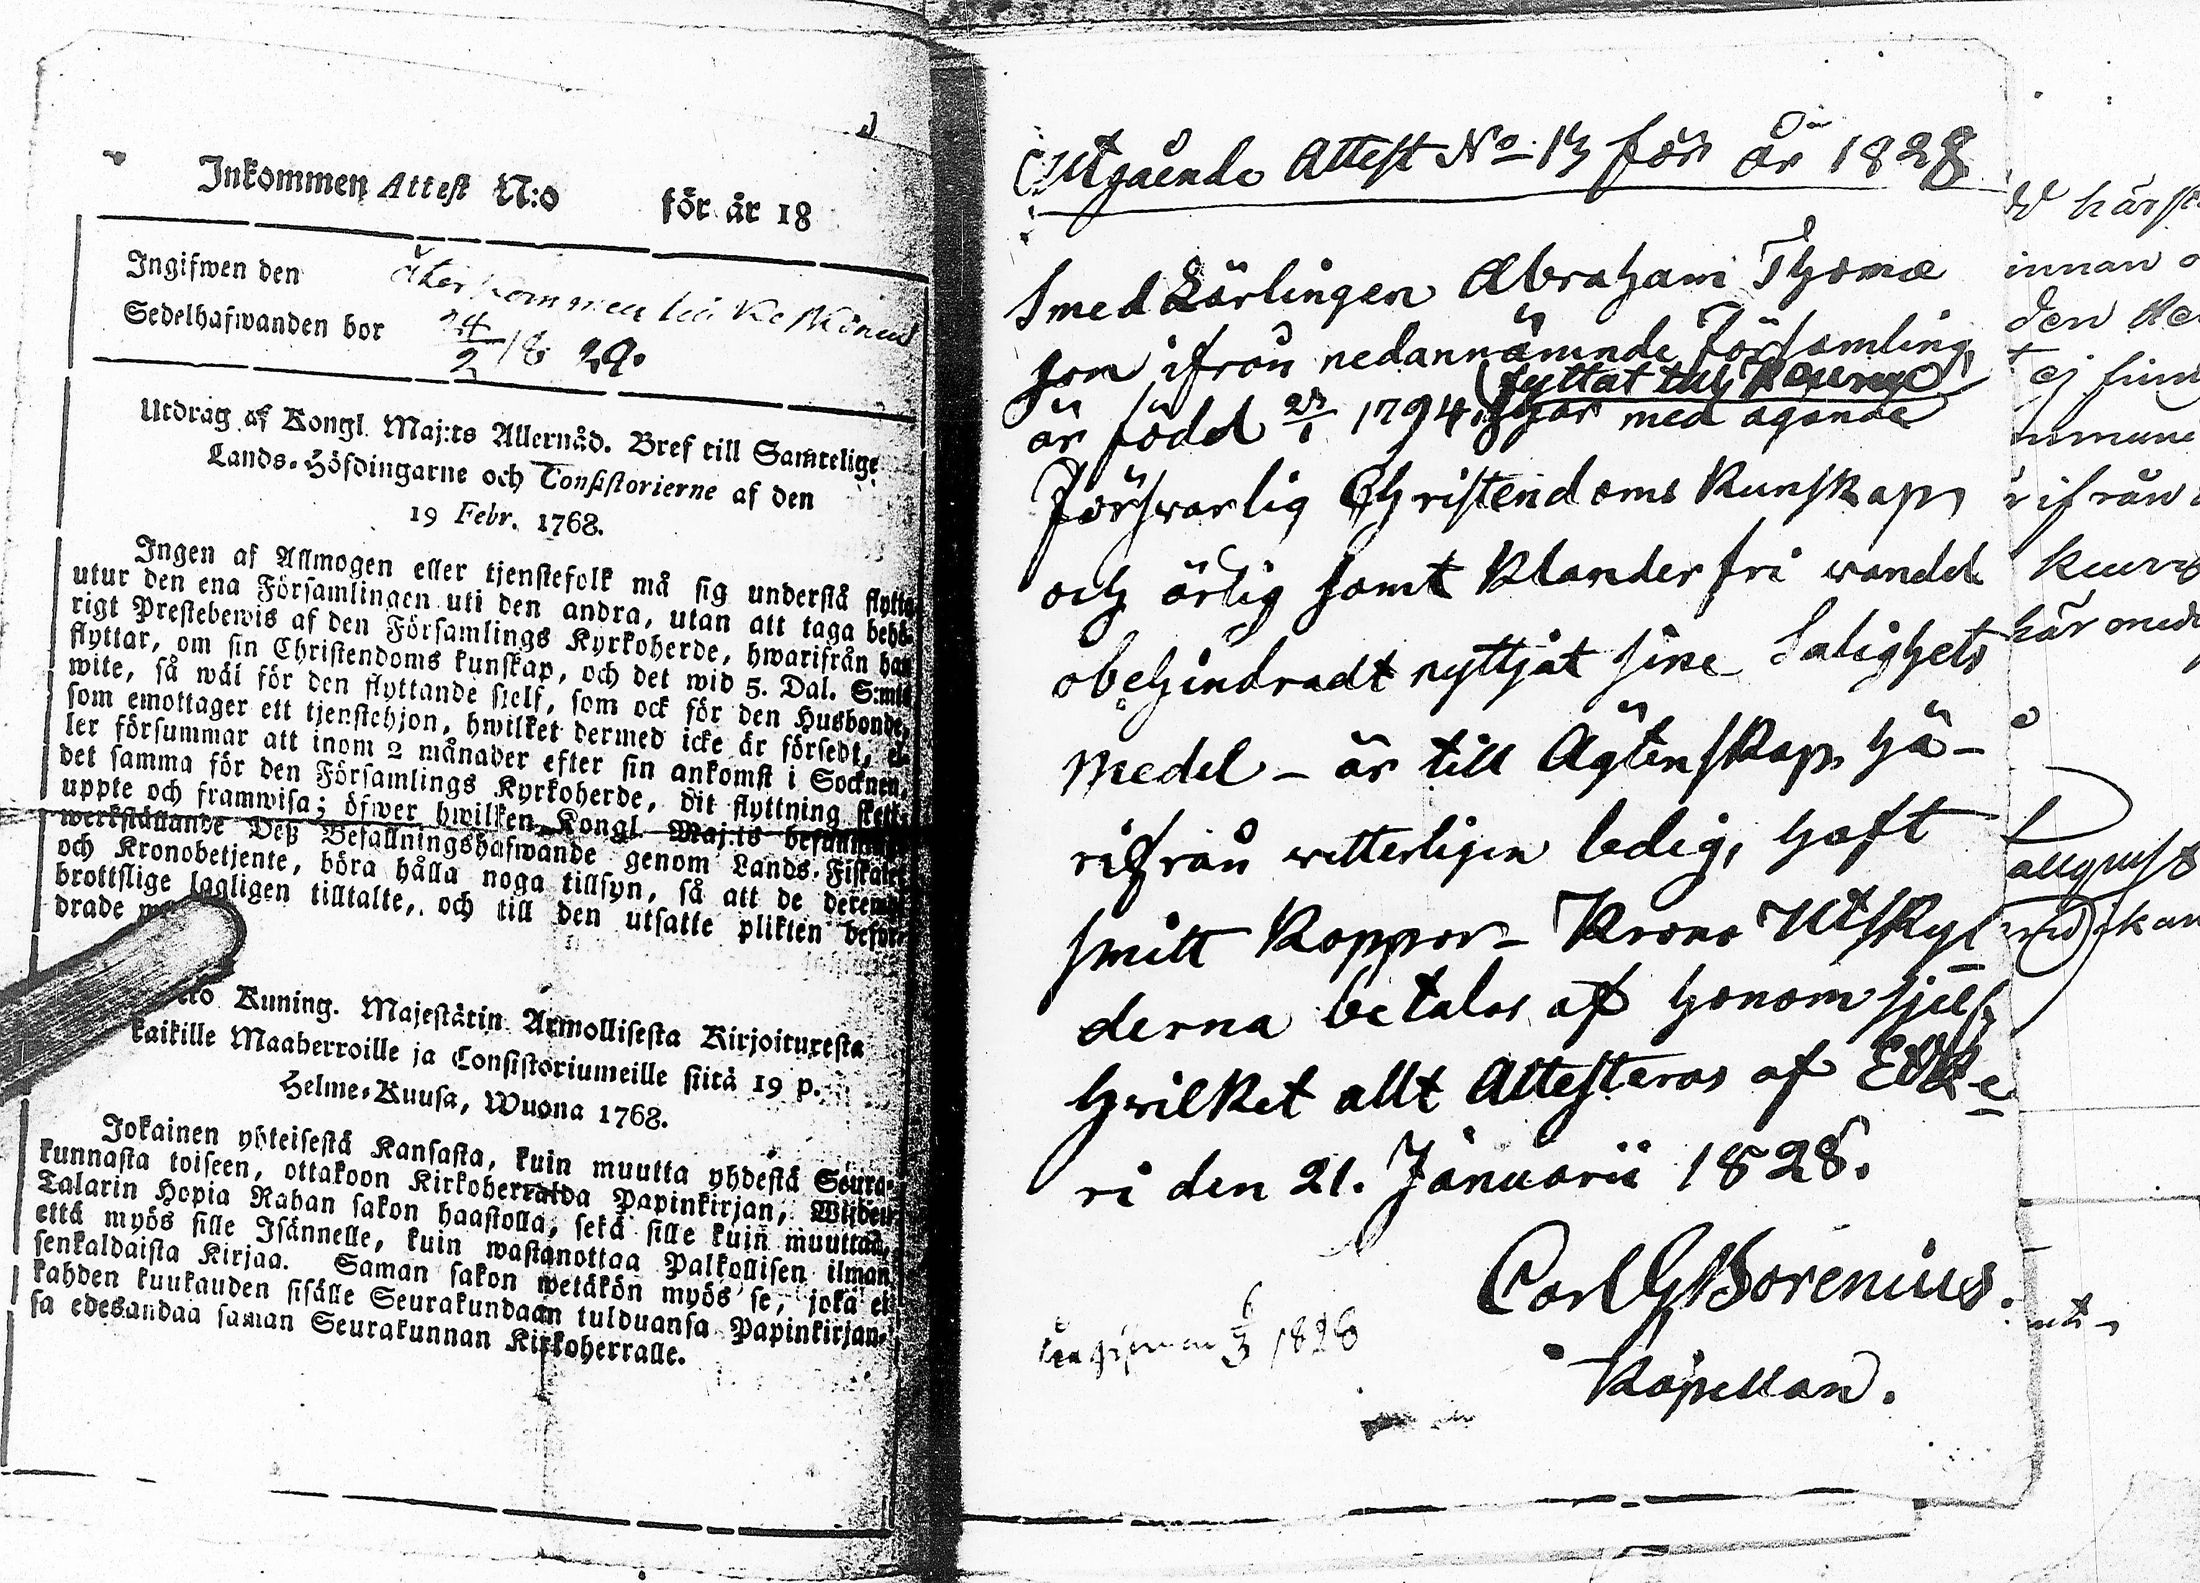 Inkommen Attest N:o för år 18
Ingifwen den återkommen
Sedelhafwanden bor 24/2 18 29.
Utdrag af Kongl. Maj:ts Allernåd. Bref till Samtelige
Lands-Höfdingarne och Consistorierne af den
19 Febr. 1768.
Ingen af Allmogen eller tjenstefolk må sig understå flytta
utur den ena Församlingen uti den andra, utan att taga behö-
rigt Prestebewis af den Församlings Kyrkoherde, hwarifrån han
flyttar, om sin Christendoms kunskap, och det wid 5. Dal. S:mts
wite, så wäl för den flyttande sielf, som ock för den Husbonde,
som emottager ett tjenstehjon, hwilket dermed icke är försedt, el-
ler försummar att inom 2 månader efter sin ankomst i Socknen,
det samma för den Församlings Kyrkoherde, dit flyttning skett,
uppte och framwisa; öfwer hwilken Kongl. Maj:ts befallnings
werkställande Deß Befallningshafwande genom Lands-Fiskaler
och Kronobetjente, böra hålla noga tillsyn, så att de deremot
brottslige lagligen tilltalte, och till den utsatte plikten befor-
drade
Kuning. Majestätin Armollisesta Kirjoituxesta
kaikille Maaherroille ja Consistoriumeille siitä 19 p.
Helme-Kuusa, Wuona 1768.
Jokainen yhteisestä Kansasta, kuin muutta yhdestä Seura-
kunnasta toiseen, ottakoon Kirkoherralda Papinkirjan, Wijden
Talarin Hopia Rahan sakon haastolla, sekä sille kuin muuttaa,
että myös sille Isännelle, kuin wastanottaa Palkollisen ilman
senkaldaista Kirjaa. Saman sakon wetäkön myös se, joka ei
kahden kuukauden sisälle Seurakundaan tulduansa Papinkirjan-
sa edesandaa saman Seurakunnan Kirkoherralle.
Utgående Attest No 13 för år 1828
Smed Lärlingen Abraham Thomæ
som ifrån nedannämnde Församling,
flyttat till
är född 1794, har med ägande
Försvarlig Christendoms Kunskap,
och ärlig samt Klanderfri wandel
obehindradt nyttjat sine Salighets
medel – är till Ägtenskap hä-
rifrån witterligen ledig, haft
smitt Koppor – Krono Utsky-
derna betalas af honom sjelf,
hwilket allt Attesteras af Eske-
ri den 21. Januarii 1828.
Carl G Borenius.
Kapellan.
ingifwen 6/3 1828
härst
innan
den
ej finn
ifrån
härmed
august